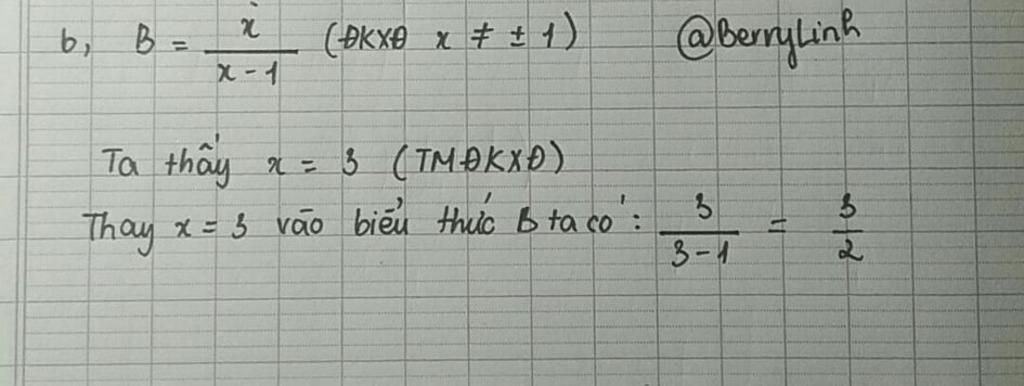 b, B = x / (x - 1) (ĐKXĐ x ≠ ± 1) @BerryLinh
Ta thấy x = 3 (TMĐKXĐ)
Thay x = 3 vào biểu thức B ta có: 3 / (3 - 1) = 3 / 2